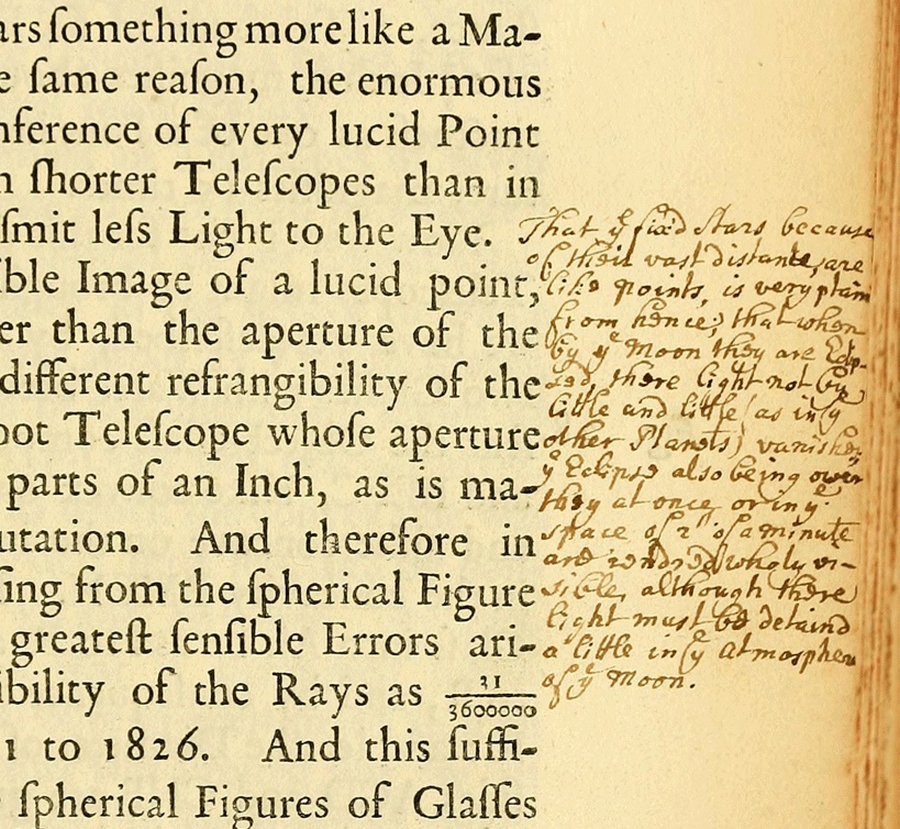 ars ſomething more like a Ma-
e ſame reaſon, the enormous
nference of every lucid Point
n ſhorter Teleſcopes than in
ſmit leſs Light to the Eye.
ible Image of a lucid point,
er than the aperture of the
different refrangibility of the
oot Teleſcope whoſe aperture
parts of an Inch, as is ma-
utation. And therefore in
ſing from the ſpherical Figure
greateſt ſenſible Errors ari-
ibility of the Rays as 31/3600000
1 to 1826. And this ſuffi-
ſpherical Figures of Glaſſes
That yͤ fixd Stars because
of their vast distante, are
like points, is very plain
from hence; that when
by yͤ Moon they are Eclip-
sed, there light not by
little and little (as in yͤ
other Planets) vanishes
yͤ Eclipse also being over
they at once or in yͤ
space of 2″ of a minute
are rendred wholy vi-
sible, although there
light must be detaind
a little in yͤ Atmospher
of yͤ Moon.